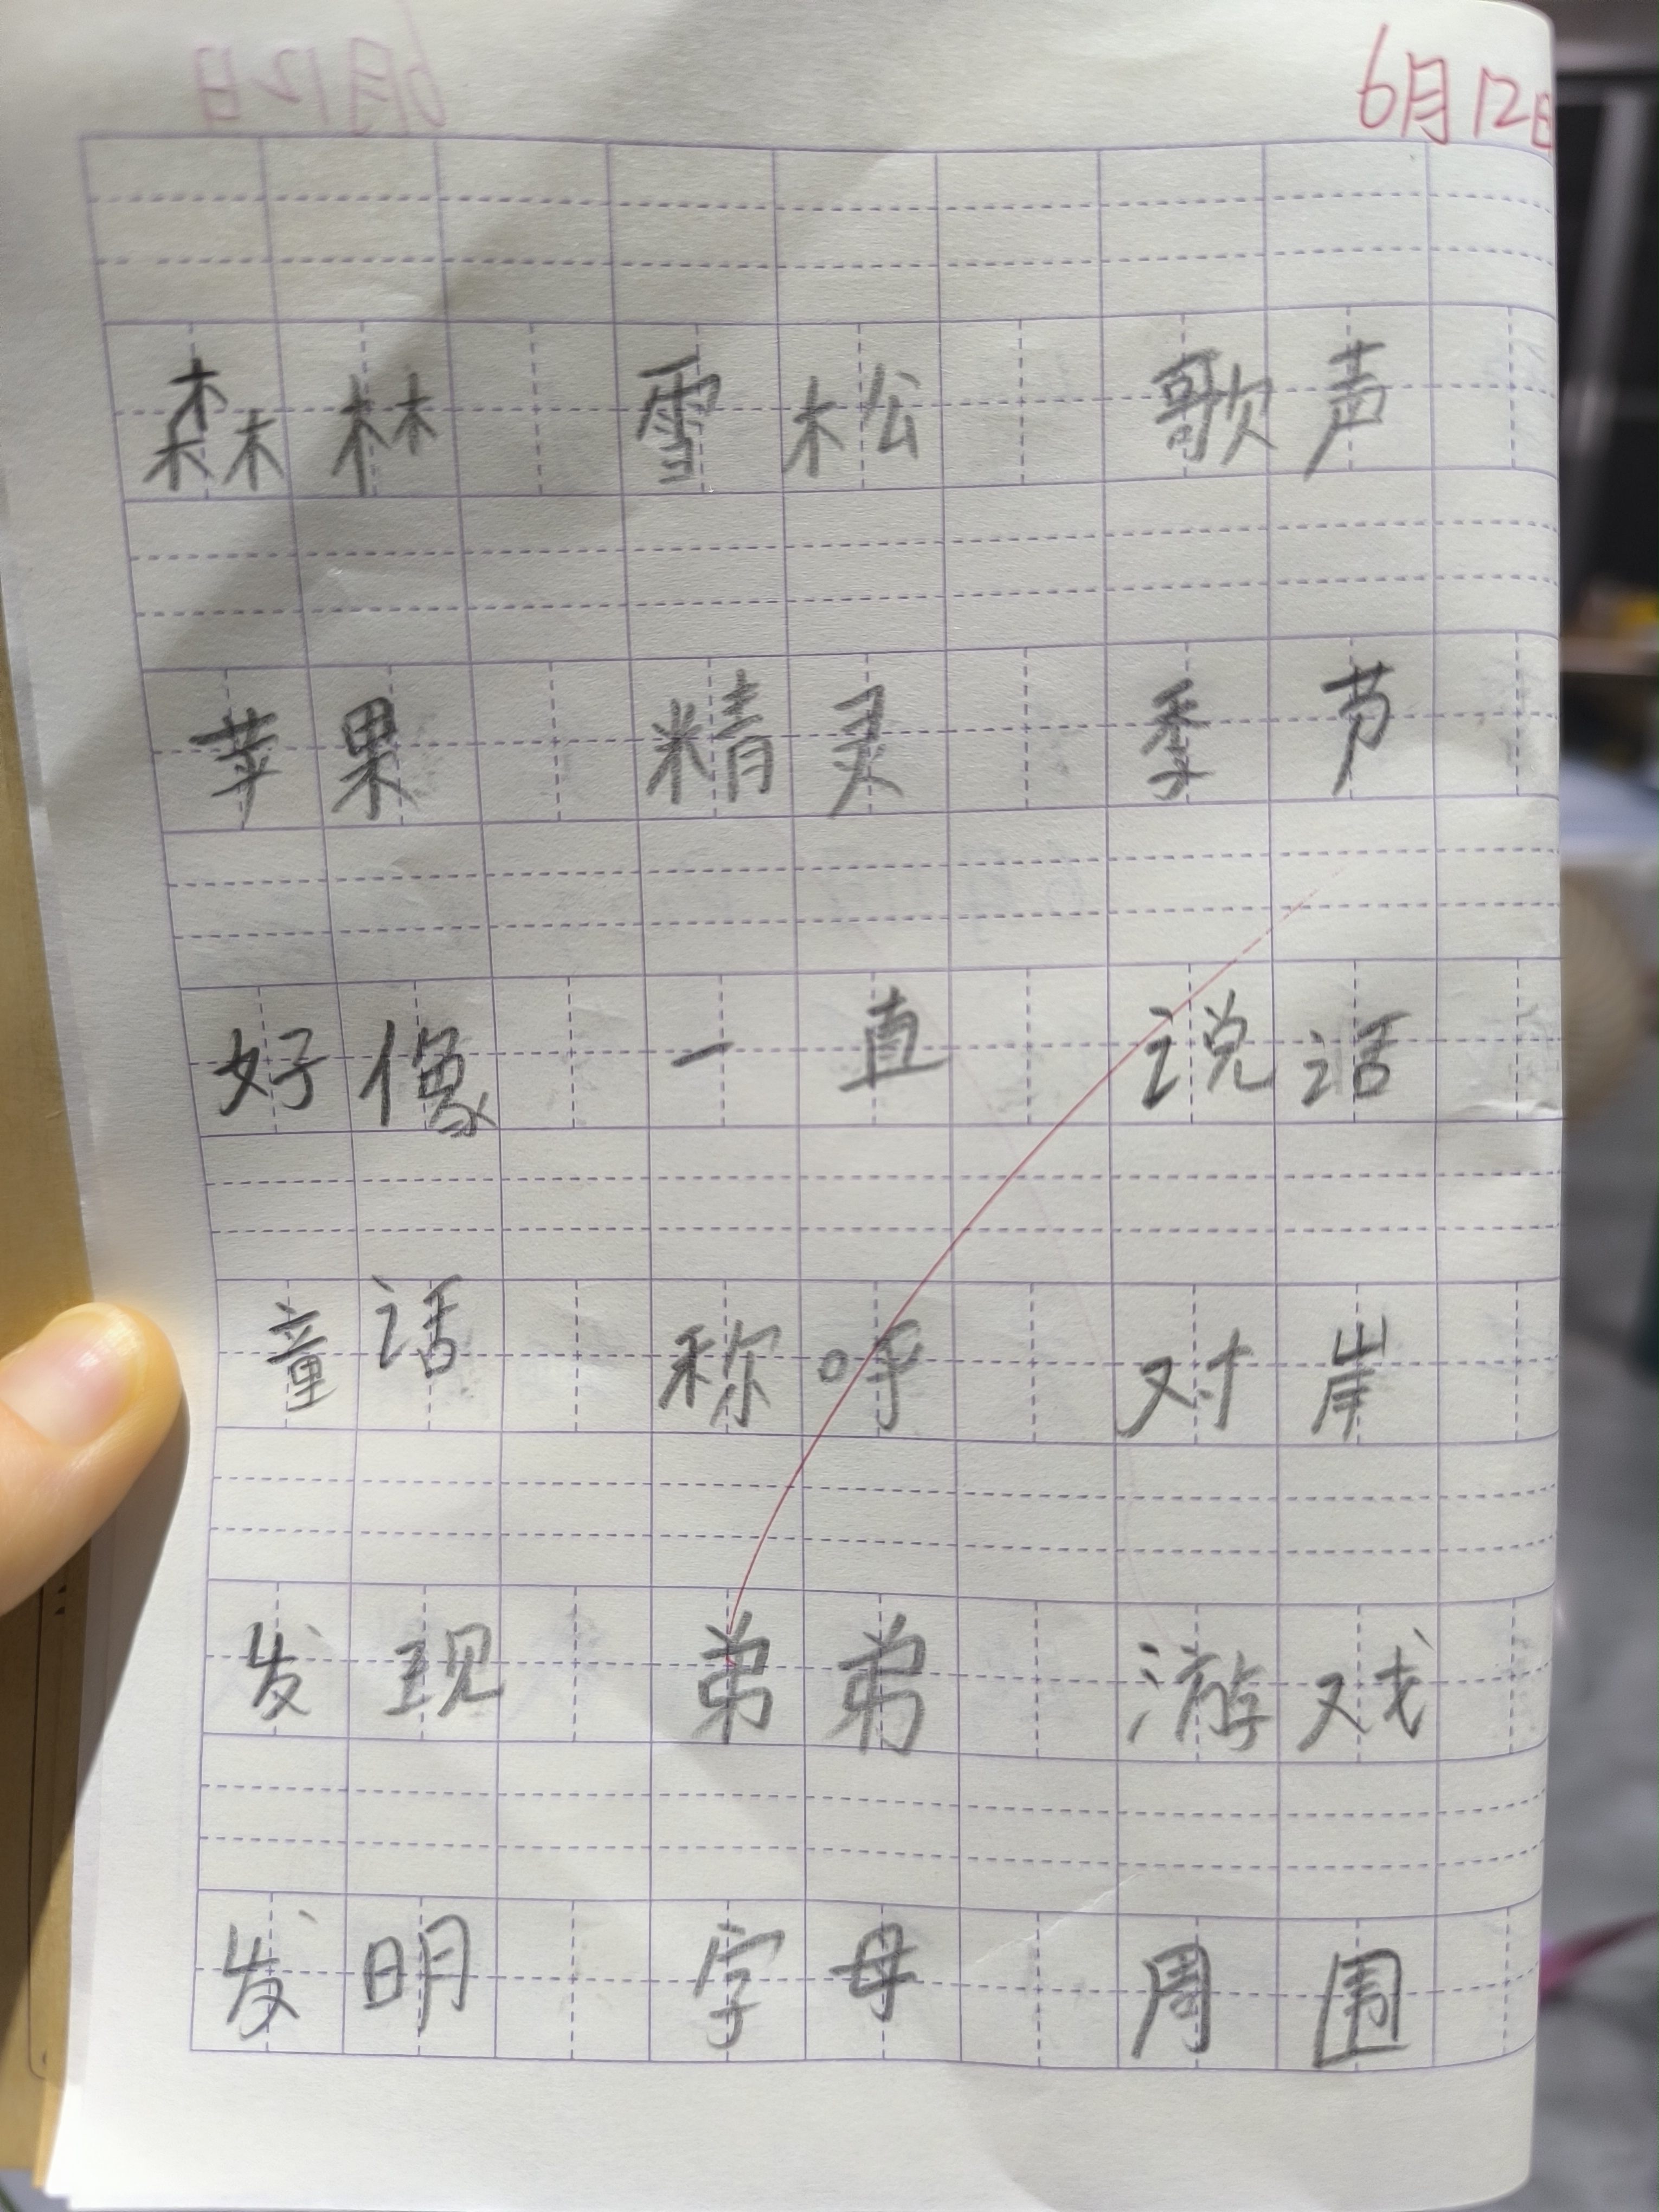 6月12日
森林 雪松 歌声
苹果 精灵 季节
好像 一直 说话
童话 称呼 对岸
发现 弟弟 游戏
发明 字母 周围